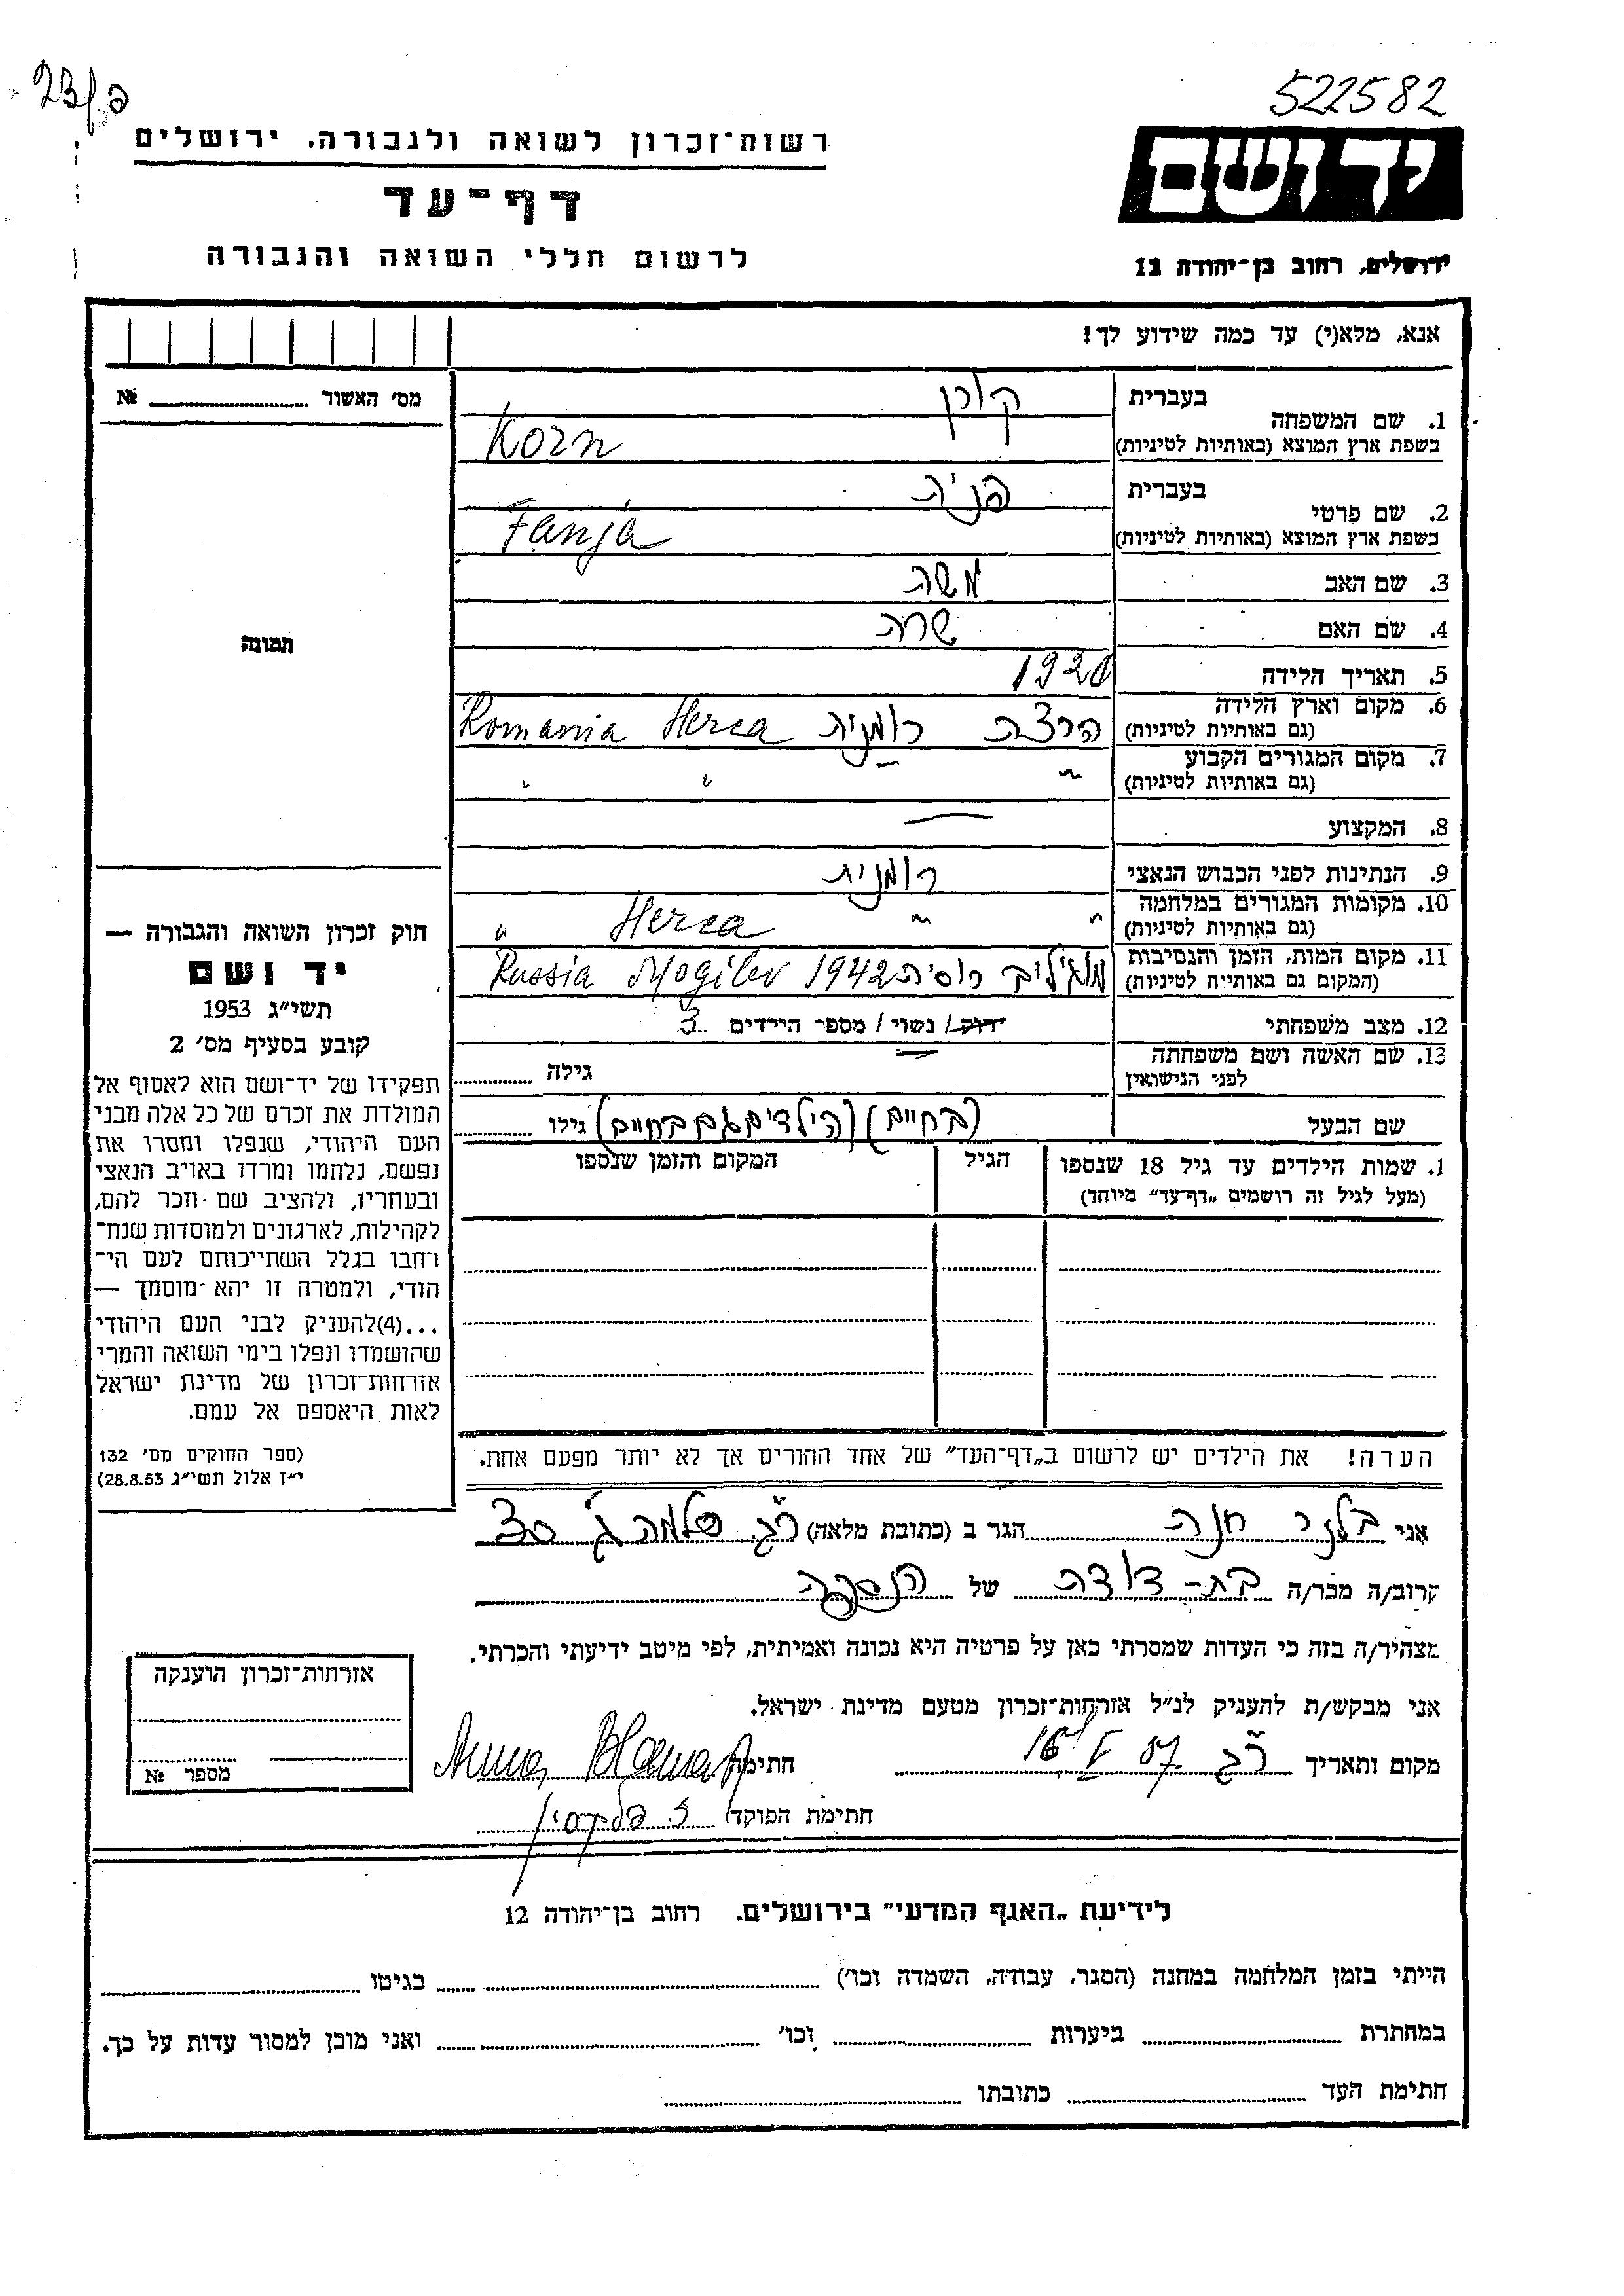 522582
23/פ
יד ושם
רשות־זכרון לשואה ולגבורה, ירושלים
דף־עד
לרשום חללי השואה והגבורה
ירושלים, רחוב בן־יהודה 12
אנא, מלא(י) עד כמה שידוע לך!
מס' האשור № 
בעברית קורן
1. שם המשפחה
בשפת ארץ המוצא (באותיות לטיניות) Korn
בעברית פניה
2. שם פרטי
בשפת ארץ המוצא (באותיות לטיניות) Fanja
3. שם האב משה
4. שם האם שרה
תמונה
5. תאריך הלידה 1920
6. מקום וארץ הלידה הרצה רומניה Herca Romania
(גם באותיות לטיניות)
7. מקום המגורים הקבוע " " "
(גם באותיות לטיניות)
8. המקצוע —
9. הנתינות לפני הכבוש הנאצי רומנית
10. מקומות המגורים במלחמה " " Herca "
(גם באותיות לטיניות)
11. מקום המות, הזמן והנסיבות מוגילוב רוסיה 1942 Mogilev Russia
(המקום גם באותיות לטיניות)
12. מצב משפחתי רווק / נשוי / מספר הילדים 3
13. שם האשה ושם משפחתה — גילה
לפני הנישואין
שם הבעל (בחיים) (הילדים גם בחיים) גילו
1. שמות הילדים עד גיל 18 שנספו הגיל המקום והזמן שנספו
(מעל לגיל זה רושמים „דף־עד" מיוחד)
חוק זכרון השואה והגבורה —
יד ושם
תשי"ג 1953
קובע בסעיף מס' 2
תפקידו של יד־ושם הוא לאסוף אל
המולדת את זכרם של כל אלה מבני
העם היהודי, שנפלו ומסרו את
נפשם, נלחמו ומרדו באויב הנאצי
ובעוזריו, ולהציב שם וזכר להם,
לקהילות, לארגונים ולמוסדות שנח־
רחבו בגלל השתייכותם לעם הי־
הודי, ולמטרה זו יהא מוסמך —
...(4)להעניק לבני העם היהודי
שהושמדו ונפלו בימי השואה והמרי
אזרחות־זכרון של מדינת ישראל
לאות היאספם אל עמם.
(ספר החוקים מס' 132
י"ז אלול תשי"ג 28.8.53)
הערה! את הילדים יש לרשום ב„דף־העד" של אחד ההורים אך לא יותר מפעם אחת.
אני בלנר חנה הגר ב (כתובת מלאה) ר"ג
קרוב/ה מכר/ה בת-דודה של הנספה
מצהיר/ה בזה כי העדות שמסרתי כאן על פרטיה היא נכונה ואמיתית, לפי מיטב ידיעתי והכרתי.
אני מבקש/ת להעניק לנ"ל אזרחות־זכרון מטעם מדינת ישראל.
מקום ותאריך ר"ג חתימה
חתימת הפוקד
אזרחות־זכרון הוענקה
מספר №
לידיעת „האגף המדעי" בירושלים. רחוב בן־יהודה 12
הייתי בזמן המלחמה במחנה (הסגר, עבודה, השמדה וכו') בגיטו
במחתרת ביערות וכו' ואני מוכן למסור עדות על כך.
חתימת העד כתובתו